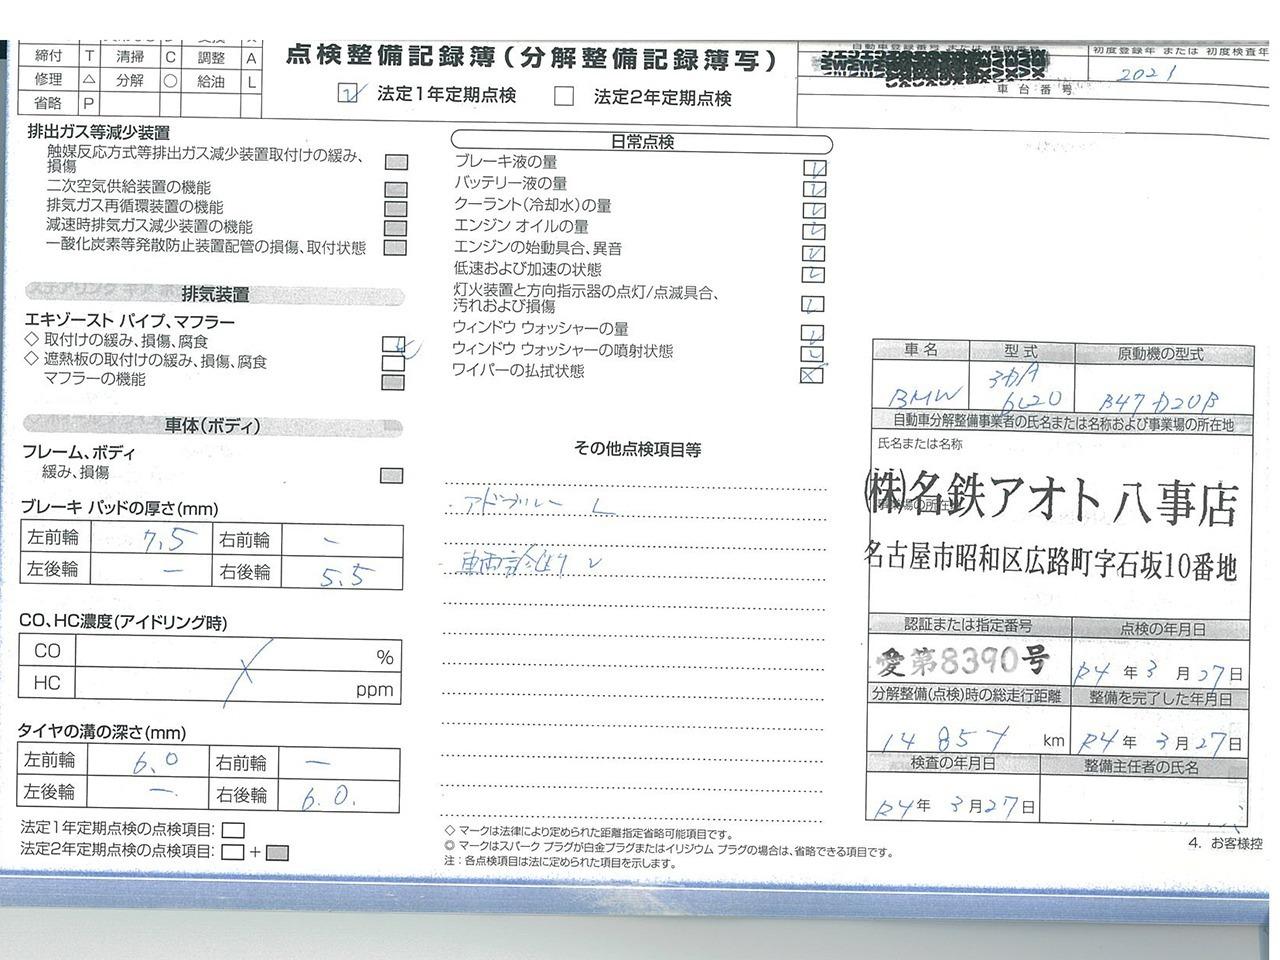 締付 T 清掃 C 調整 A
修理 △ 分解 ○ 給油 L
省略 P
点検整備記録簿(分解整備記録簿写)
法定1年定期点検 法定2年定期点検
初度登録年 または 初度検査年
2021
車台番号
排出ガス等減少装置
触媒反応方式等排出ガス減少装置取付けの緩み、
損傷
二次空気供給装置の機能
排気ガス再循環装置の機能
減速時排気ガス減少装置の機能
一酸化炭素等発散防止装置配管の損傷、取付状態
排気装置
エキゾースト パイプ、マフラー
◇ 取付けの緩み、損傷、腐食
◇ 遮熱板の取付けの緩み、損傷、腐食
マフラーの機能
車体(ボディ)
フレーム、ボディ
緩み、損傷
ブレーキ パッドの厚さ(mm)
左前輪 7.5 右前輪 -
左後輪 - 右後輪 5.5
CO、HC濃度(アイドリング時)
CO %
HC ppm
タイヤの溝の深さ(mm)
左前輪 6.0 右前輪 -
左後輪 - 右後輪 6.0.
法定1年定期点検の点検項目:
法定2年定期点検の点検項目: +
日常点検
ブレーキ液の量
バッテリー液の量
クーラント(冷却水)の量
エンジン オイルの量
エンジンの始動具合、異音
低速および加速の状態
灯火装置と方向指示器の点灯/点滅具合、
汚れおよび損傷
ウィンドウ ウォッシャーの量
ウィンドウ ウォッシャーの噴射状態
ワイパーの払拭状態
その他点検項目等
アドブルー L
車両診断 レ
◇ マークは法律により定められた距離指定省略可能項目です。
◎ マークはスパーク プラグが白金プラグまたはイリジウム プラグの場合は、省略できる項目です。
注:各点検項目は法に定められた項目を示します。
車名 型式 原動機の型式
BMW 3DA 6L20 B47D20B
自動車分解整備事業者の氏名または名称および事業場の所在地
氏名または名称
(株)名鉄アオト 八事店
事業場の所在地
名古屋市昭和区広路町字石坂10番地
認証または指定番号 点検の年月日
愛第8390号 R4年3月27日
分解整備(点検)時の総走行距離 整備を完了した年月日
14857 km R4年3月27日
検査の年月日 整備主任者の氏名
R4年3月27日
4. お客様控